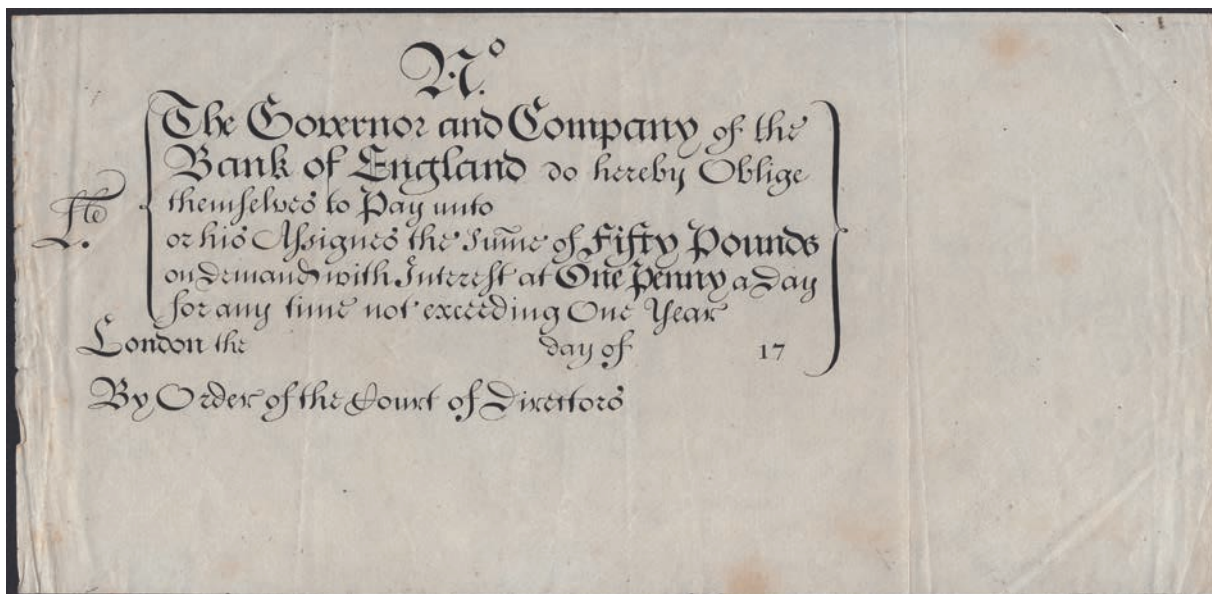 No.
The Governor and Company of the
Bank of England do hereby Oblige
themselves to Pay unto
or his Assignes the Sum̄e of Fifty Pounds
on demand with Interest at One Penny a Day
for any time not exceeding One Year
London the day of 17
By Order of the Court of Directors